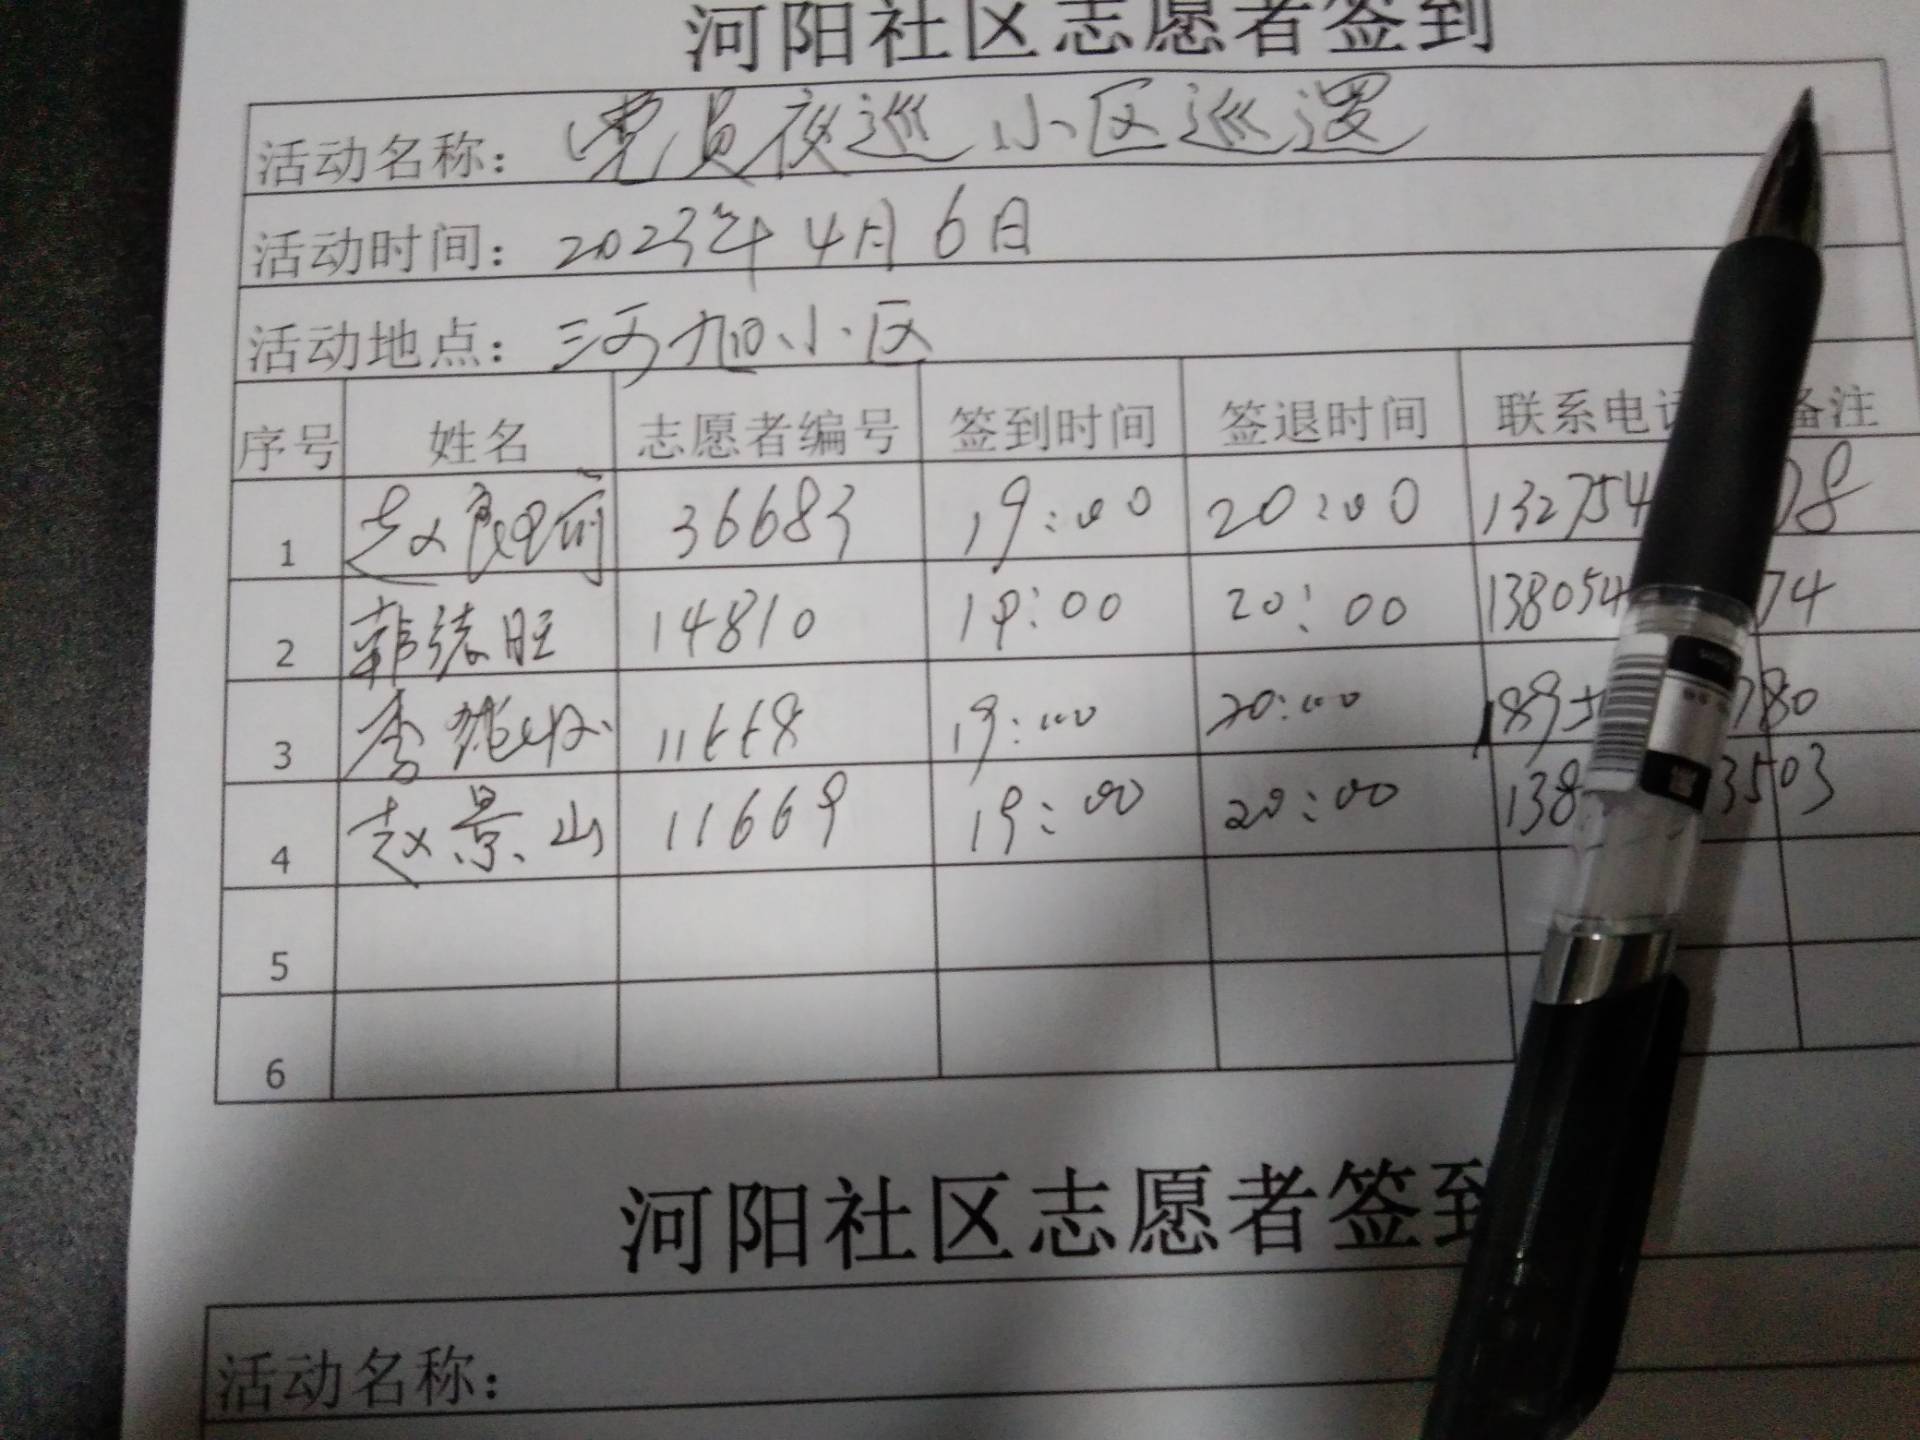 河阳社区志愿者签到
活动名称: 党员夜巡 小区巡逻
活动时间: 2023年4月6日
活动地点: 小区
序号 姓名 志愿者编号 签到时间 签退时间 联系电话 备注
1 赵 36683 19:00 20:00 132754 08
2 韩德旺 14810 19:00 20:00 138054 74
3 李 11668 19:00 20:00 1895 780
4 赵景山 11669 19:00 20:00 138 3503
5
6
河阳社区志愿者签到
活动名称: